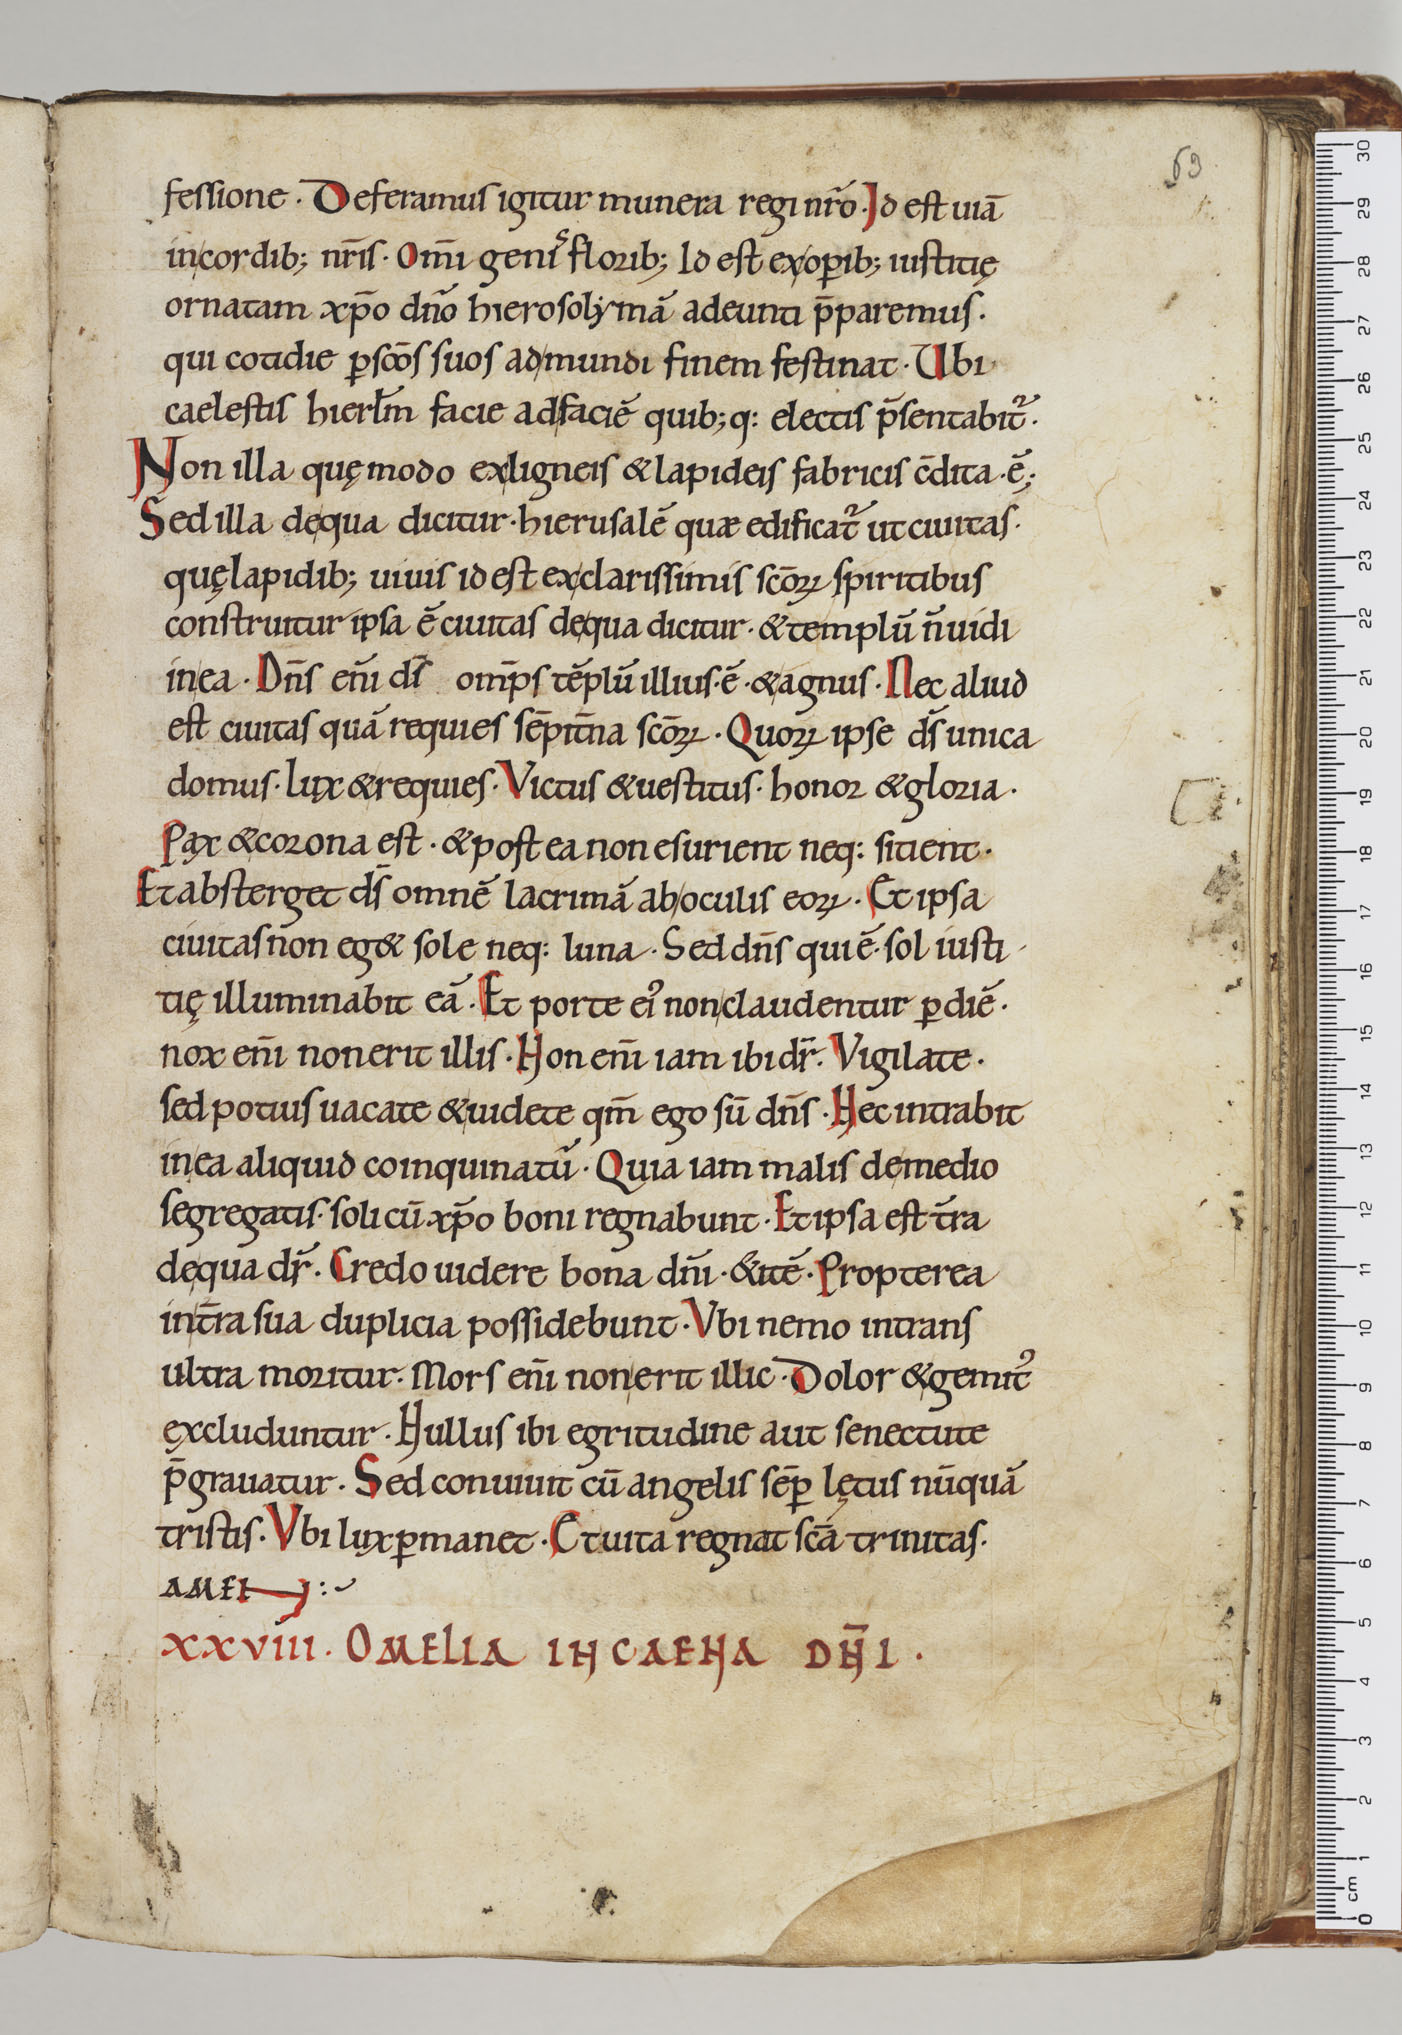 63
fessione · Deferamus igitur munera regi nr̄o · Id est uiā
incordib; nr̄is · Om̄i geniˢ florib; Id est exop̄ib; iustitię
ornatam xp̄o dn̄o hierosolẏmā adeunti p̄paremus ·
qui cotidie ꝑscōs suos admundi finem festinat · Ubi
caelestis hierłm facie adfaciē quib; q: electis p̄sentabit᷑ ·
Non illa quę modo exligneis & lapideis fabricis c̄dita · ē ;
Sed illa dequa dicitur · hierusalē quæ edificat᷑ ut ciuitas ·
quę lapidib; uiuis id est exclarissimis scōꝝ spiritibus
construitur ipsa ē ciuitas dequa dicitur · & templū n̄ uidi
inea · Dn̄s eni̅ ds̄ om̄ps tēplū illius · ē · & agnus · Nec aliud
est ciuitas quā requies sēpit̄na scōꝝ · Quoꝝ ipse ds̄ unica
domus · lux & requies · Victus & uestitus · honor & gloria ·
Pax & corona est · & postea non esurient neq: sitient ·
Et absterget ds̄ omnē lacrimā aboculis eoꝝ · Et ipsa
ciuitas non eg& sole neq: luna · Sed dn̄s qui ē · sol iusti
tię illuminabit eā · Et porte ei᾽ nonclaudentur ꝑ diē ·
nox eni̅ non erit illis · Non eni̅ iam ibi dr̄ · Vigilate ·
sed potius uacate & uidete qm̄ ego sū dn̄s · Nec intrabit
inea aliquid coinquinatū · Quia iam malis demedio
segregatis · soli cū xp̄o boni regnabunt · Et ipsa est t̄ra
dequa dr̄ · Credo uidere bona dn̄i · & itē · Propterea
int̄ra sua duplicia possidebunt · Vbi nemo intrans
ultra moritur · Mors eni̅ nonerit illic · Dolor & gemit᾽
excluduntur · Nullus ibi egritudine aut senectute
p̄grauatur · Sed conuiuit cū angelis sēꝑ lętus nūquā
tristis · Vbi lux ꝑmanet · Et uita regnat scā trinitas ·
AMEN :~
XXVIII · OMELIA IN CAENA DN̄I ·